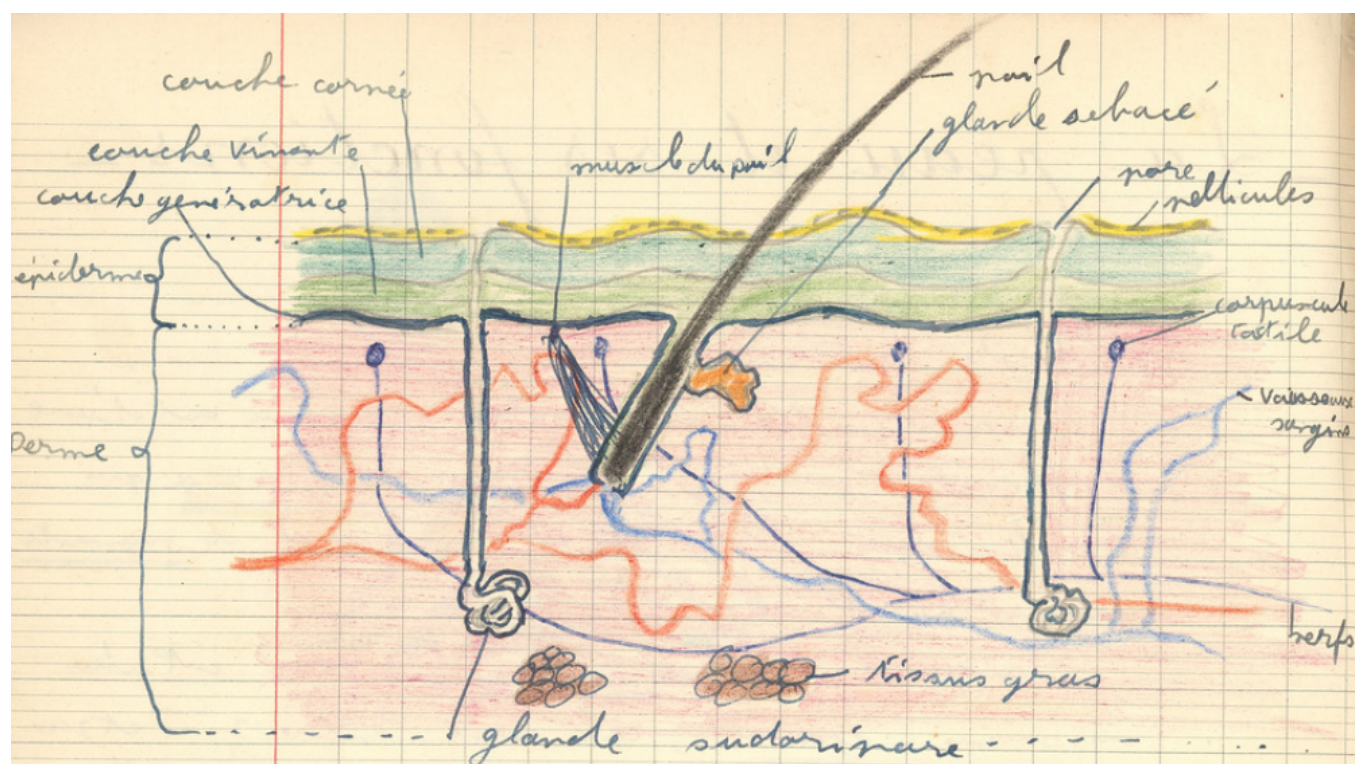 couche cornée
couche vivante
couche génératrice
épiderme
Derme
muscle du poil
poil
glande sebacé
pore
pellicules
corpuscule
tactile
vaisseaux
sanguins
nerfs
tissus gras
glande sudoripare